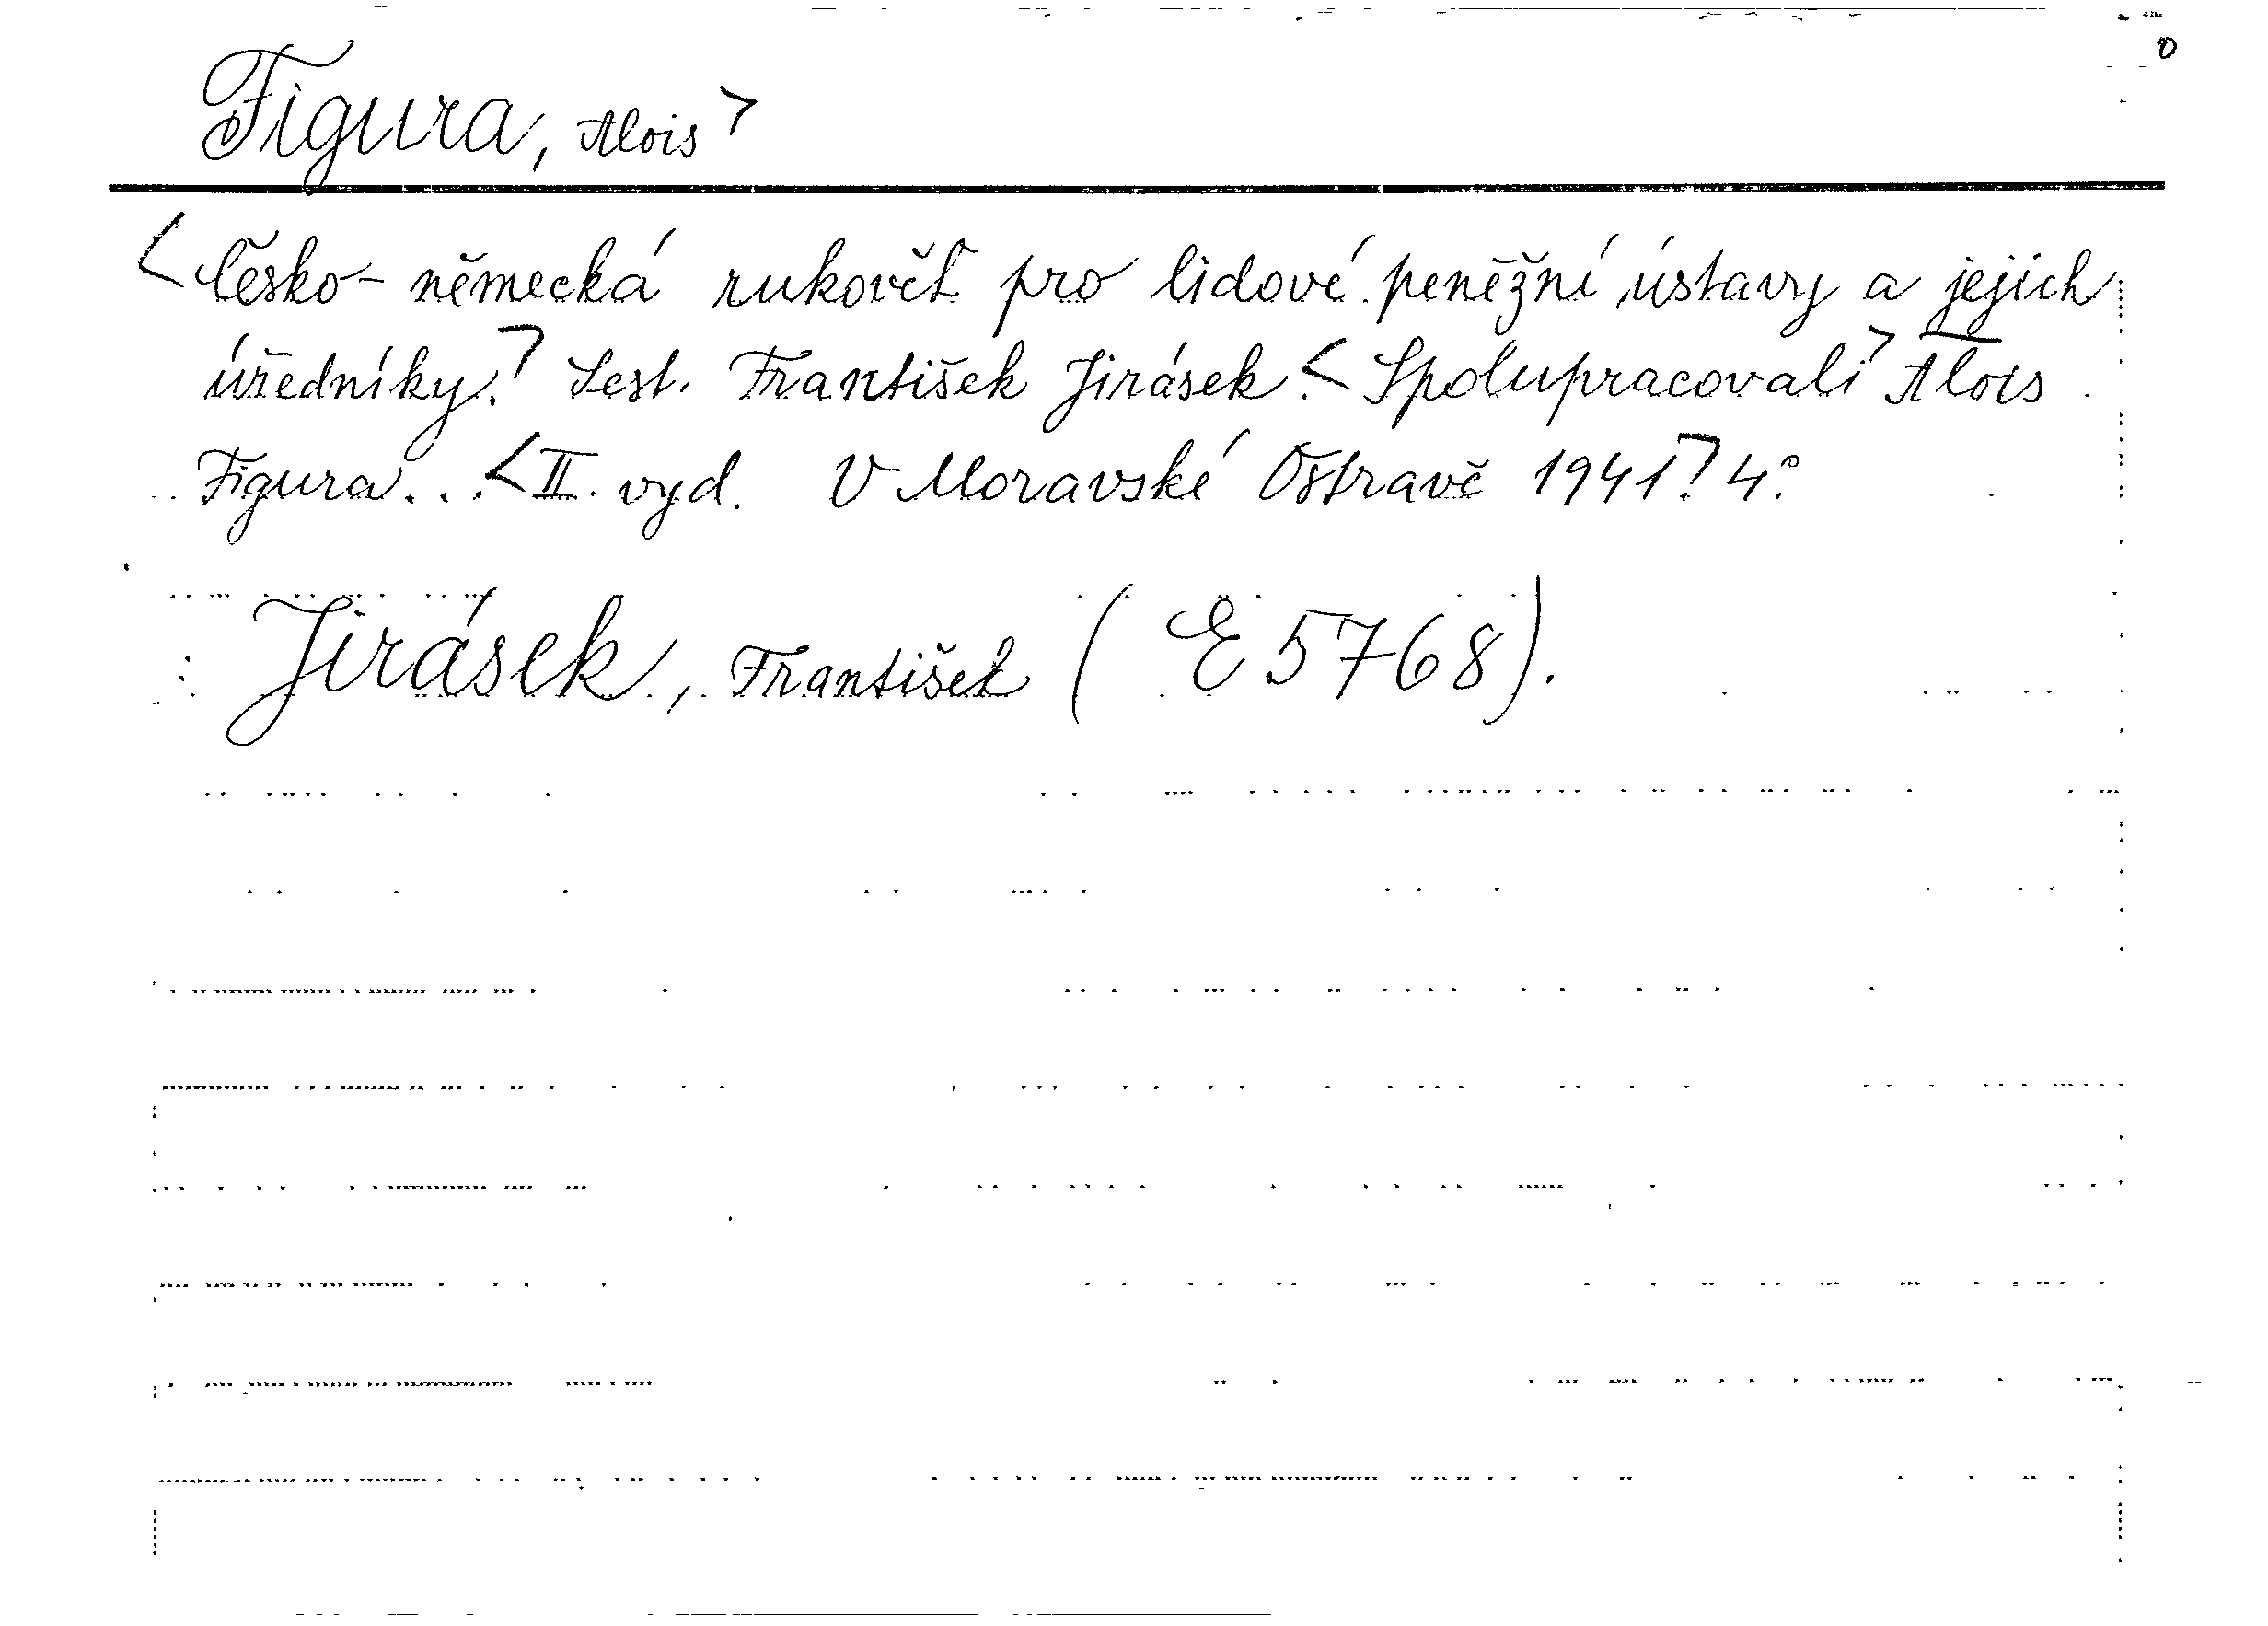 o
Figura, Alois >
< Česko-německá rukověť pro lidové peněžní ústavy a jejich
úředníky. > Sest. František Jirásek. < Spolupracovali > Alois
Figura... < II. vyd. V Moravské Ostravě 1941. > 4°.
Jirásek, František (E 5768).